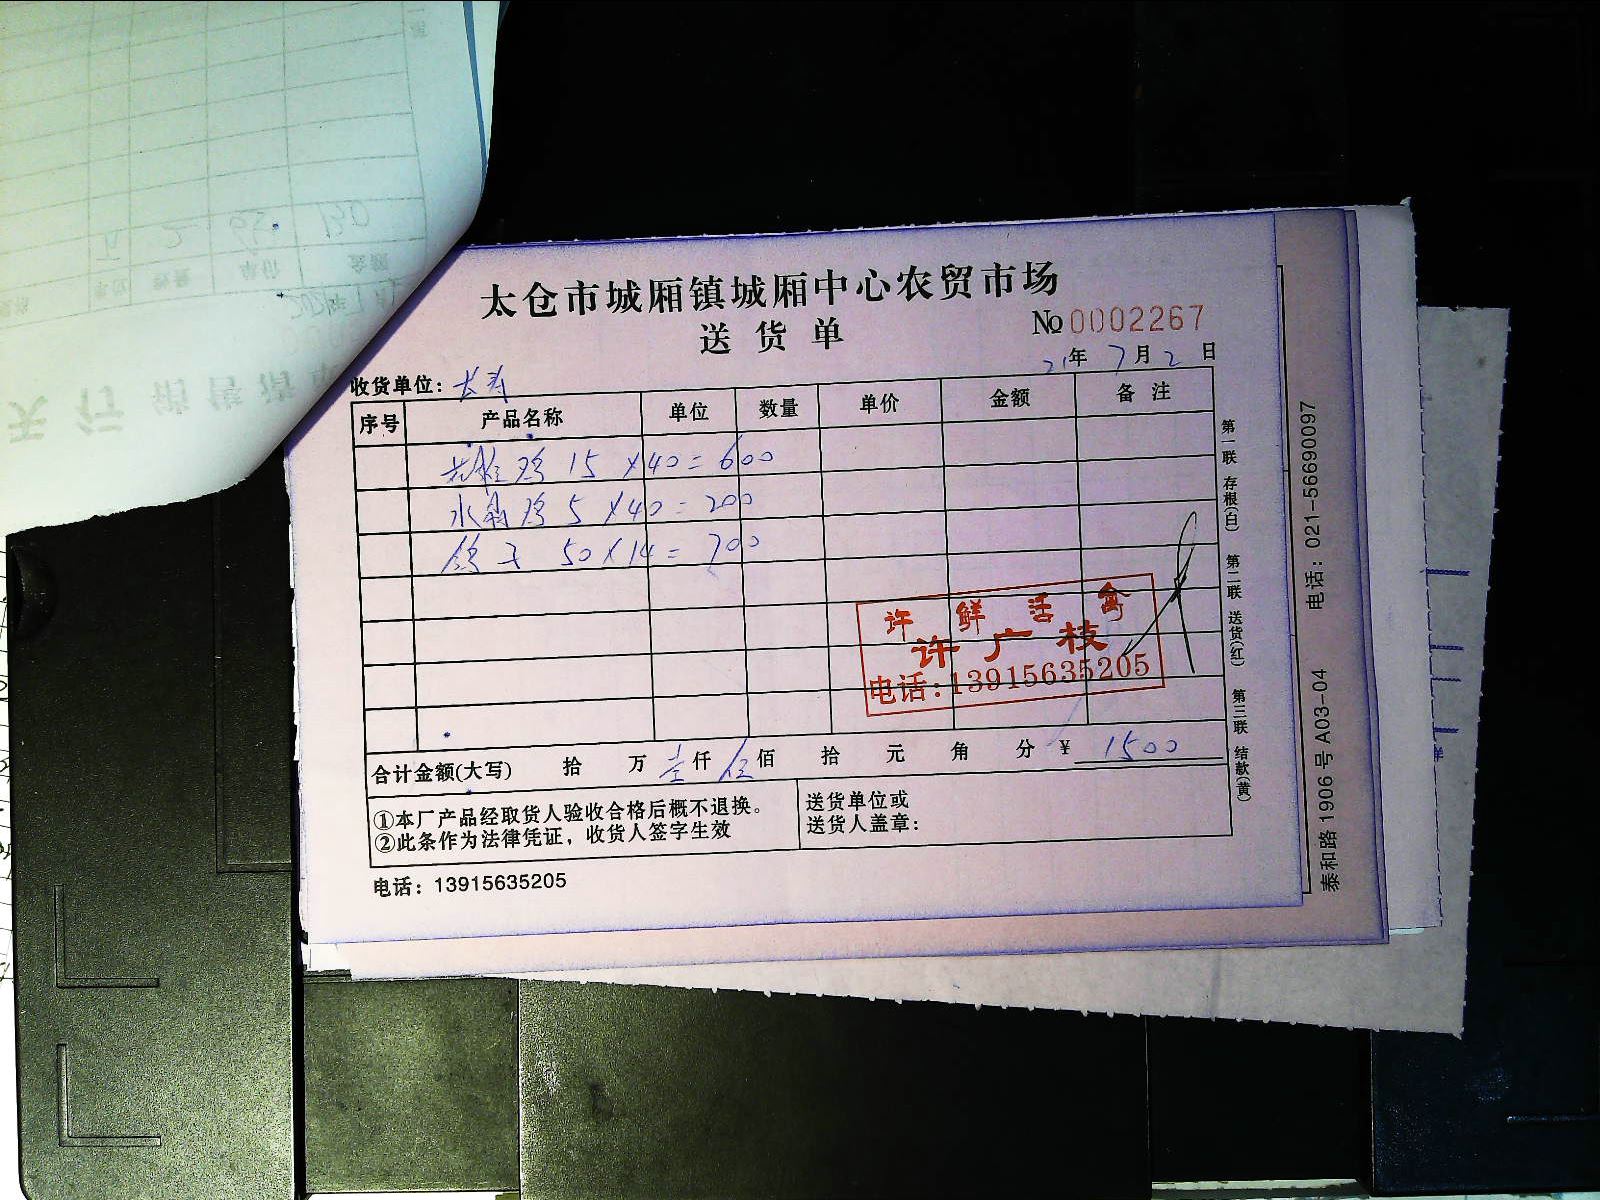 太仓市城厢镇城厢中心农贸市场
送货单
№0002267
21年7月2日
收货单位:
序号 产品名称 单位 数量 单价 金额 备注
鸡 15×40=600
水 鸡 5×40=200
鸽子 50×14=700
许鲜活禽
许广枝
电话:13915635205
合计金额(大写) 拾 万 壹仟 伍佰 拾 元 角 分 ¥ 1500
①本厂产品经取货人验收合格后概不退换。
②此条作为法律凭证，收货人签字生效
送货单位或
送货人盖章:
电话：13915635205
第一联 存根(白) 第二联 送货(红) 第三联 结款(黄)
泰和路1906号A03-04 电话：021-56690097
天行销售清
单位 数量 单价 金额
2 65 130